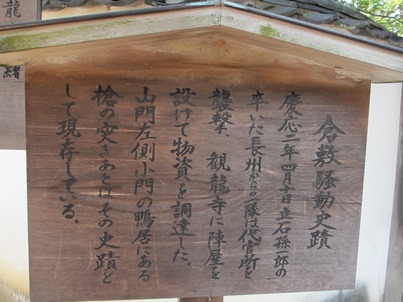 倉敷騒動史蹟
慶応二年四月十日立石孫一郎の
率いた長州からの一隊は代官所を
襲撃、観龍寺に陣屋を
設けて物資を調達した。
山門左側小門の鴨居にある
槍の突きあとはその史蹟と
して現存している。
龍
緒